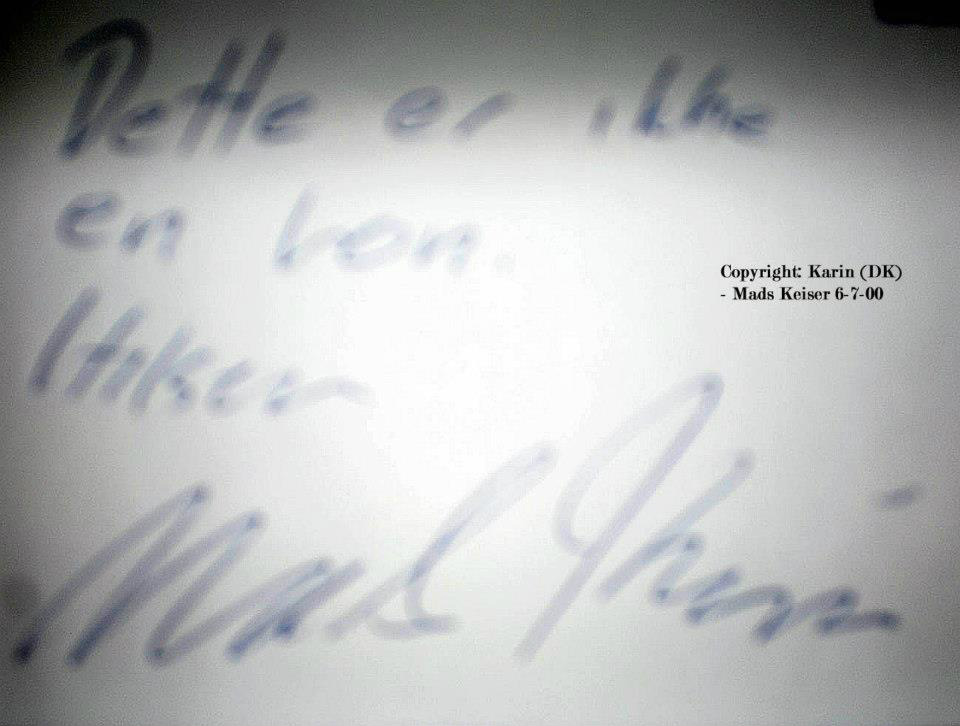 Dette er ikke
en bon.
Copyright: Karin (DK)
- Mads Keiser 6-7-00
Hilsen
Mads